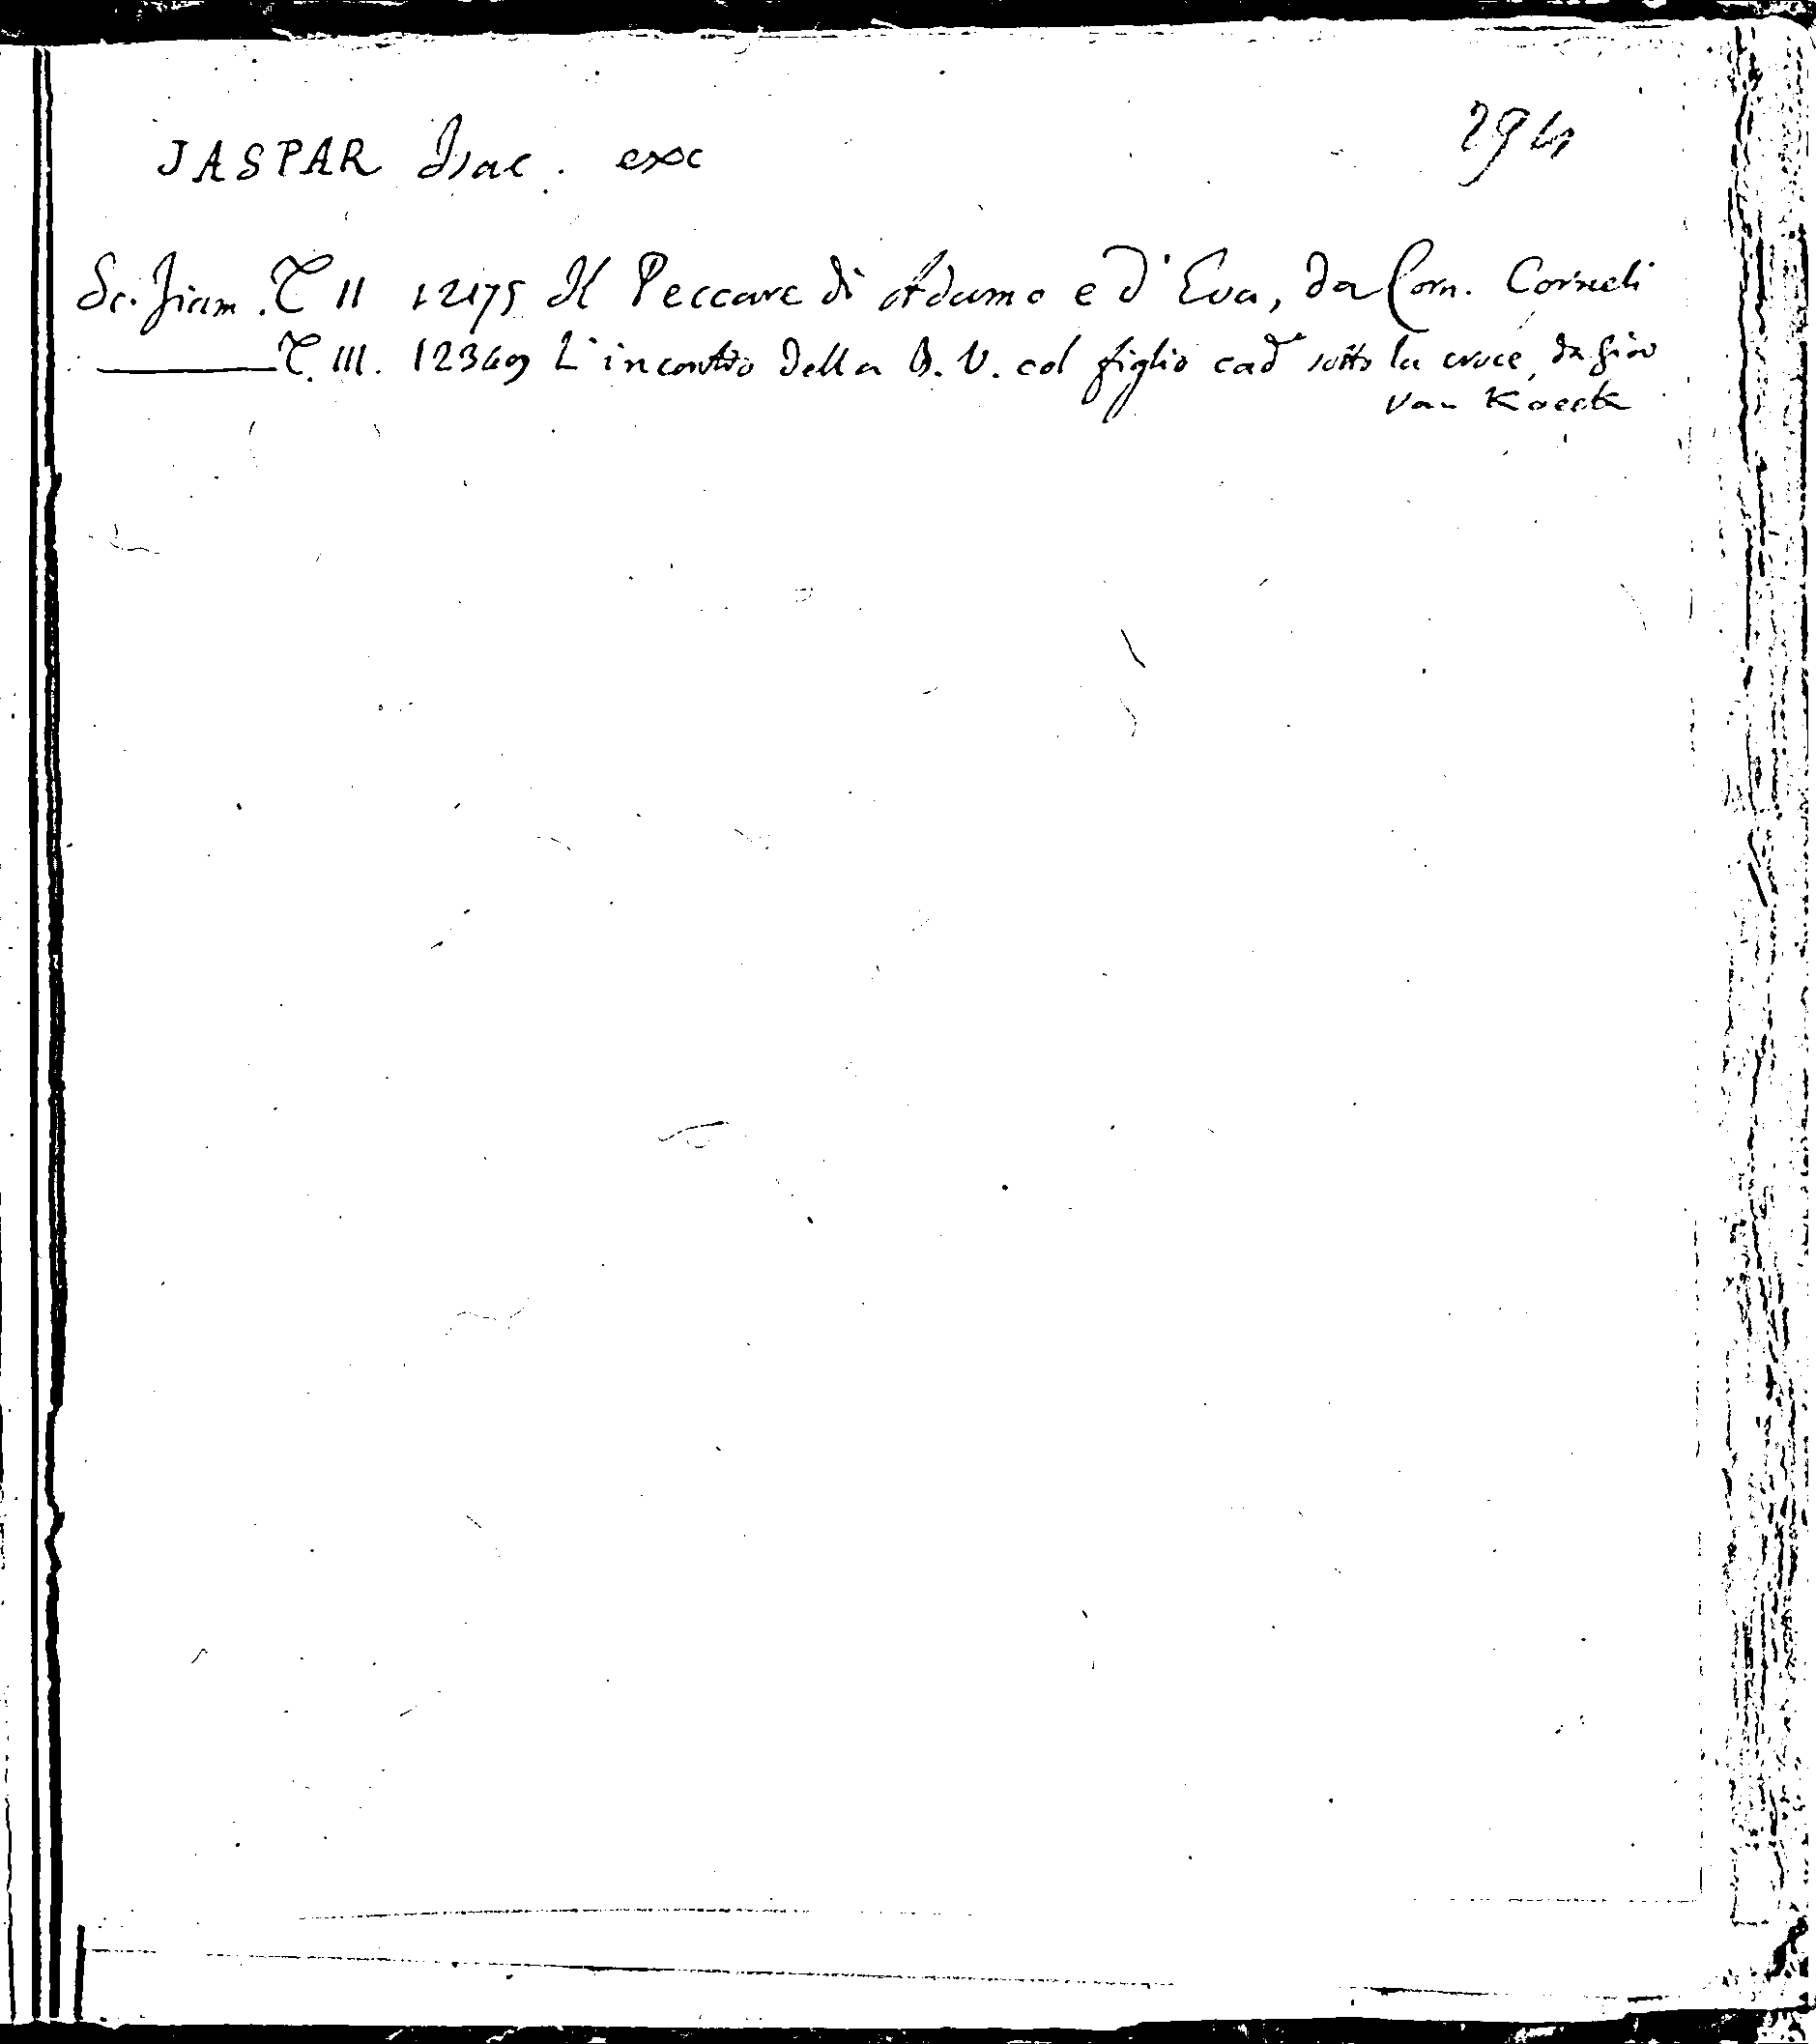 JASPAR Isac. exc
294
Sc. fiam. T II 12175 Il Peccare di Adamo e d'Eva, da Corn. Corneli
T. III. 12349 L'incontro della B. V. col figlio cad.e sotto la croce, da Gio
van Koeck